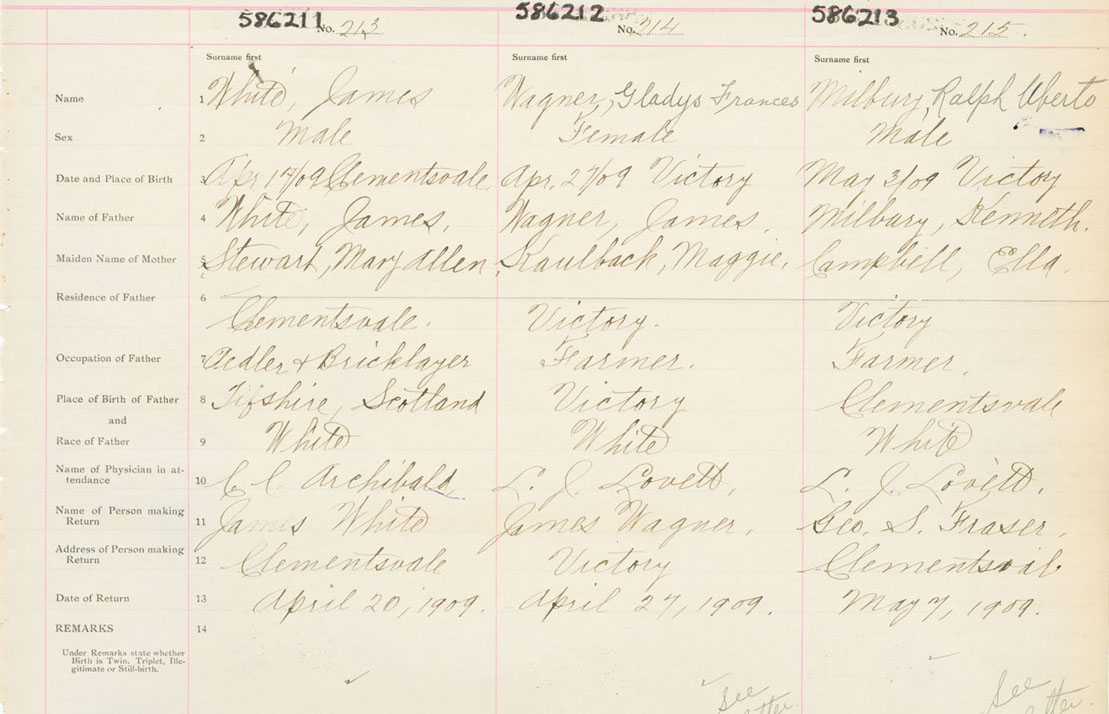 586211 No. 213 586212 No. 214 586213 No. 215.
Surname first Surname first Surname first
Name 1 White, James Wagner, Gladys Frances Milbury, Ralph Uberto
Sex 2 Male Female Male
Date and Place of Birth 3 Apr 17/09 Clementsvale, Apr. 27/09 Victory May 3/09 Victory
Name of Father 4 White, James, Wagner, James, Milbury, Kenneth.
Maiden Name of Mother 5 Stewart, Mary Allen, Kaulback, Maggie, Campbell, Ella.
Residence of Father 6
Clementsvale. Victory. Victory.
Occupation of Father 7 & Bricklayer Farmer. Farmer.
Place of Birth of Father 8 Fifshire, Scotland Victory Clementsvale
and
Race of Father 9 White White White
Name of Physician in at-
tendance 10 C. C. Archibald L. J. Lovett, L. J. Lovett.
Name of Person making
Return 11 James White James Wagner, Geo. S. Fraser,
Address of Person making
Return 12 Clementsvale Victory Clementsval
Date of Return 13 April 20, 1909. April 27, 1909. May 7, 1909.
REMARKS 14
Under Remarks state whether
Birth is Twin, Triplet, Ille-
gitimate or Still-birth.
See See